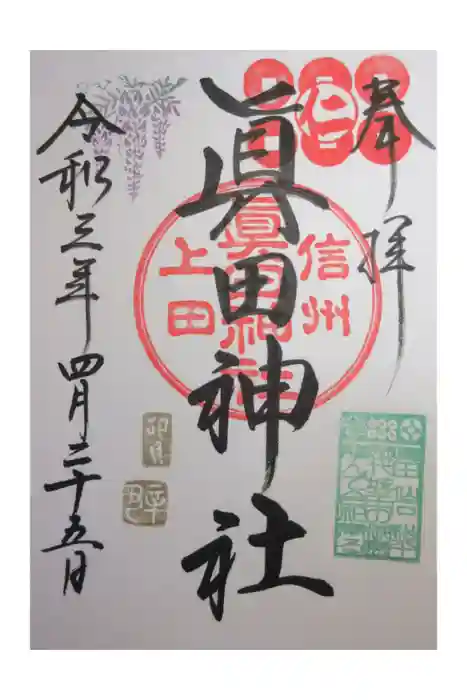 奉拝
眞田神社
信州
眞田神社
上田
仁
令和三年四月二十五日
卯月
辛丑